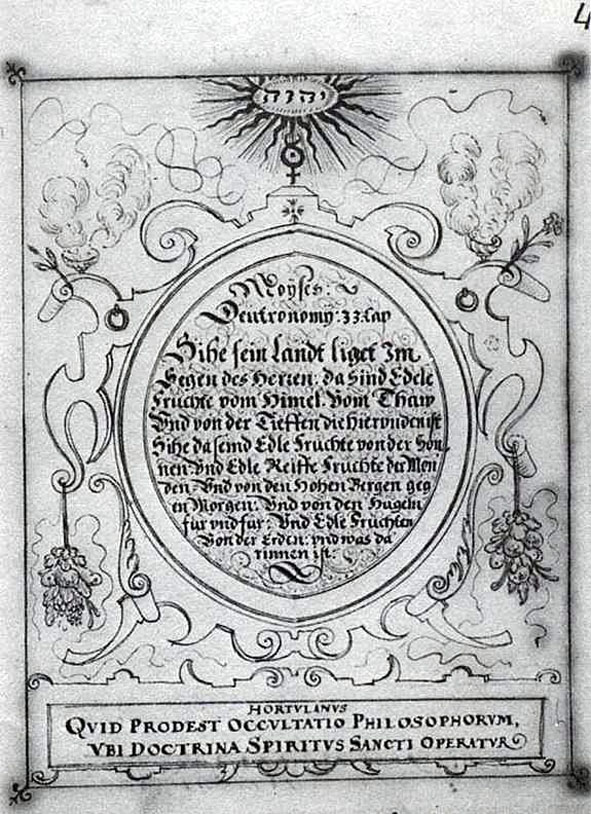 4
יהוה
Moÿses:
Deutronomÿ: 33. Cap
Sihe sein Landt liget Im
Segen des Herren: da sind Edele
Früchte vom Himel. Vom Thaw
Vnd von der Tieffen die hierunden ist
Sihe da seind Edle Früchte von der Son
nen. Vnd Edle Reiffe Früchte der Mon
den. Vnd von den Hohen Bergen geg
en Morgen: Vnd von den Hügeln
für vnd für: Vnd Edle Früchten
Von der Erden: vnd was da
rinnen ist:
HORTVLANVS
QVID PRODEST OCCVLTATIO PHILOSOPHORVM,
VBI DOCTRINA SPIRITVS SANCTI OPERATVR